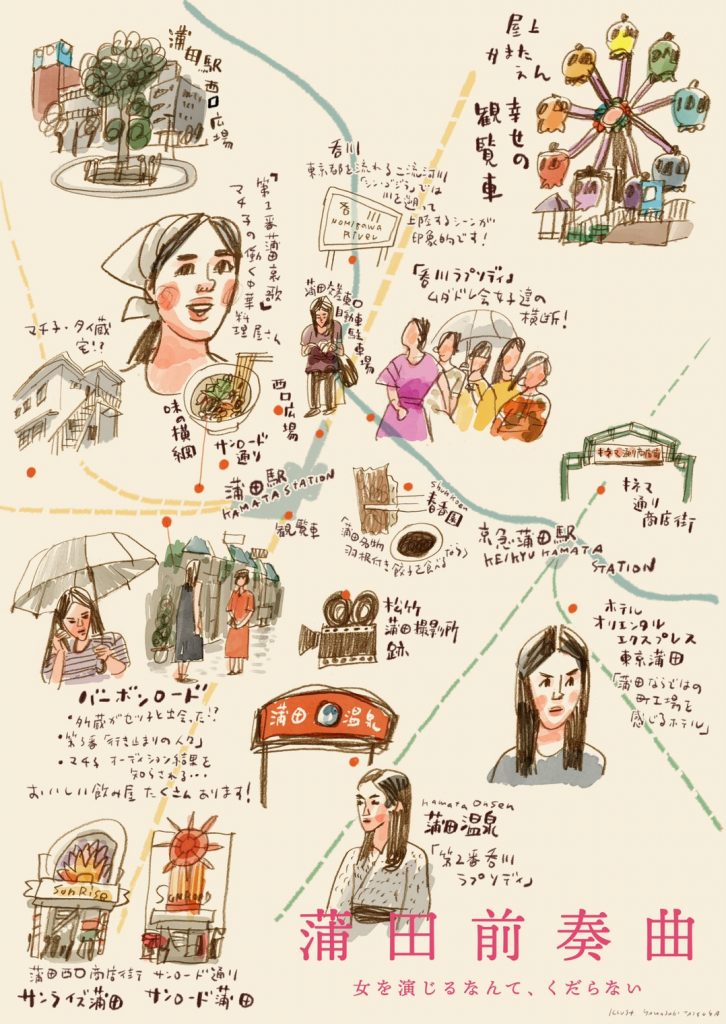 蒲田駅
西口広場
屋上
かまたえん
幸せの
観覧車
呑川
東京都を流れる二流河川
「シン・ゴジラ」では
川を遡って
上陸するシーンが
印象的です!
呑 川
NOMIGAWA
River
「第1番蒲田哀歌」
マチ子の働く中華
料理屋さん
マチ子・タイ蔵
宅!?
蒲田
自動車
駐車場
「呑川ラプソディ」
ムダドレ会女子達の
横断!
味の横綱
サンロード
通り
西口広場
蒲田駅
KAMATA STATION
観覧車
Shunkoen
春香園
「蒲田名物
羽根付き餃子を食べるなら」
京急蒲田駅
KEIKYU KAMATA
STATION
キネマ通り商店街
キネマ
通り
商店街
松竹
蒲田撮影所
跡
ホテル
オリエンタル
エクスプレス
東京蒲田
「蒲田ならではの
町工場を
感じるホテル」
バーボンロード
・タイ蔵がセツ子と出会った!?
・第3番「行き止まりの人々」
・マチ子 オーディション結果を
知らされる…
おいしい飲み屋たくさんあります!
蒲田 温泉
Kamata Onsen
蒲田温泉
「第2番呑川
ラプソディ」
SunRise
SUNROAD
蒲田西口商店街 サンロード通り
サンライズ蒲田 サンロード蒲田
蒲田前奏曲
女を演じるなんて、くだらない